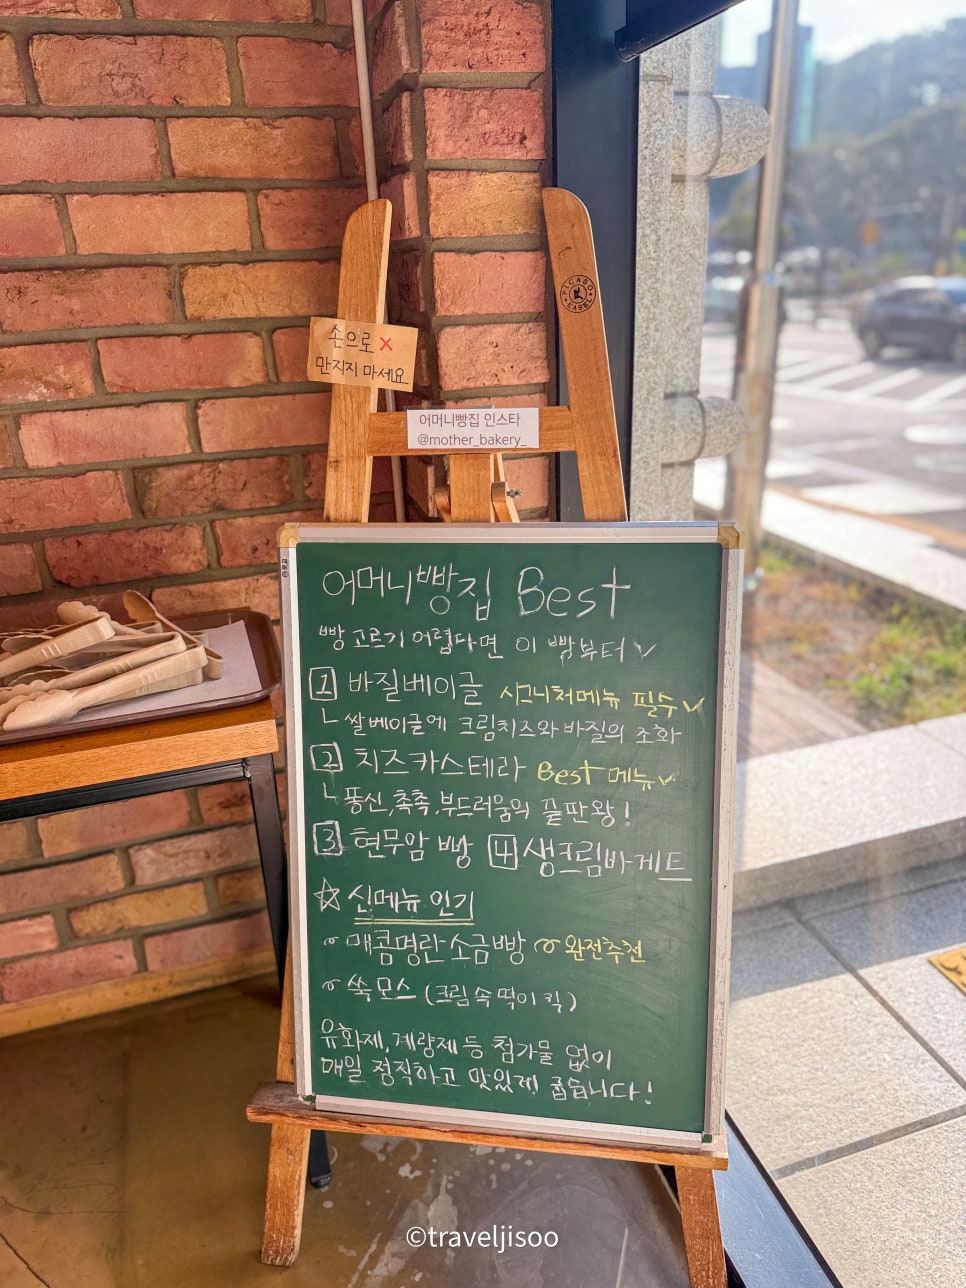 손으로 ✕
만지지 마세요
어머니빵집 인스타
@mother_bakery_
PICASO
EASEL
어머니빵집 Best
빵 고르기 어렵다면 이 빵부터 ✓
1 바질베이글 시그니처메뉴 필수 ✓
ㄴ 쌀베이글에 크림치즈와 바질의 조화
2 치즈카스테라 Best 메뉴 ✓
ㄴ 퐁신, 촉촉, 부드러움의 끝판왕!
3 현무암 빵 4 생크림바게트
☆ 신메뉴 인기
매콤명란 소금빵 완전추천
쑥모스 (크림 속 떡이 킥)
유화제, 계량제 등 첨가물 없이
매일 정직하고 맛있게 굽습니다!
©traveljisoo